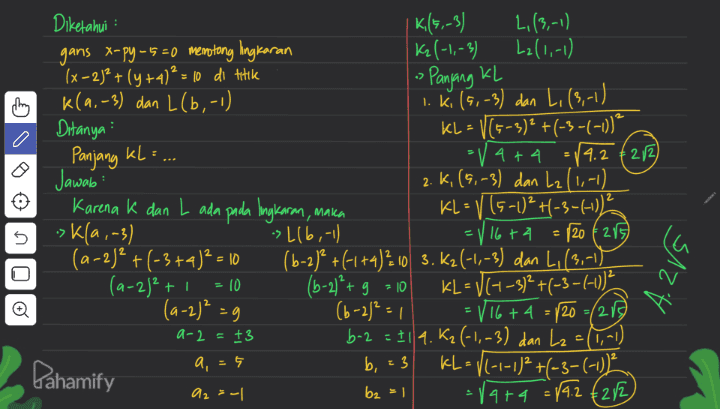 Diketahui :
garis x-py-5=0 memotong lingkaran
(x-2)² + (y+4)² = 10 di titik
K(a,-3) dan L(b,-1)
Ditanya :
Panjang KL = ...
Jawab :
Karena K dan L ada pada lingkaran, maka
-> K(a,-3)
(a-2)² + (-3+4)² = 10
(a-2)² + 1 = 10
(a-2)² = 9
a-2 = ±3
a₁ = 5
a₂ = -1
-> L(b,-1)
(b-2)² + (-1+4)² = 10
(b-2)² + 9 = 10
(b-2)² = 1
b-2 = ±1
b₁ = 3
b₂ = 1
K₁(5,-3) L₁(3,-1)
K₂(-1,-3) L₂(1,-1)
-> Panjang KL
1. K₁(5,-3) dan L₁(3,-1)
KL = √(5-3)² + (-3-(-1))²
= √4+4 = √4.2 = 2√2
2. K₁(5,-3) dan L₂(1,-1)
KL = √(5-1)² + (-3-(-1))²
= √16+4 = √20 = 2√5
3. K₂(-1,-3) dan L₁(3,-1)
KL = √(-1-3)² + (-3-(-1))²
= √16+4 = √20 = 2√5
4. K₂(-1,-3) dan L₂ = (1,-1)
KL = √(-1-1)² + (-3-(-1))²
= √4+4 = √4.2 = 2√2
A. 2√5
Pahamify